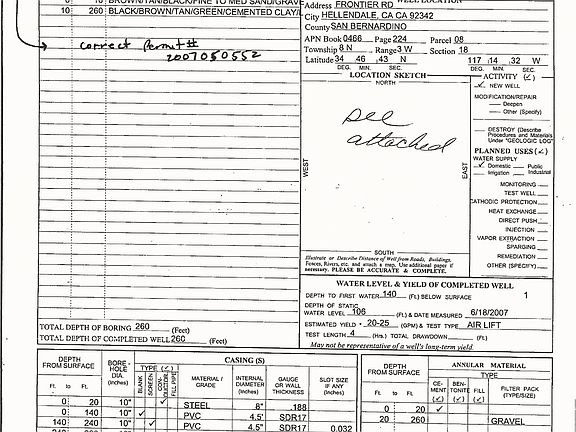 Address FRONTIER RD
City HELLENDALE, CA CA 92342
County SAN BERNARDINO
APN Book 0466 Page 224 Parcel 08
Township 8 N Range 3 W Section 18
Latitude 34 46 43 N 117 14 32 W
DEG. MIN. SEC. DEG. MIN. SEC.
0 10 BROWN/TAN/BLACK/FINE TO MED SAND/GRAVE
10 260 BLACK/BROWN/TAN/GREEN/CEMENTED CLAY/
correct Permit#
2007050552
LOCATION SKETCH
NORTH
see
attached
WEST
EAST
SOUTH
Illustrate or Describe Distance of Well from Roads, Buildings,
Fences, Rivers, etc. and attach a map. Use additional paper if
necessary. PLEASE BE ACCURATE & COMPLETE.
ACTIVITY (✓)
✓ NEW WELL
MODIFICATION/REPAIR
Deepen
Other (Specify)
DESTROY (Describe
Procedures and Materials
Under "GEOLOGIC LOG"
PLANNED USES (✓)
WATER SUPPLY
✓ Domestic Public
Irrigation Industrial
MONITORING
TEST WELL
CATHODIC PROTECTION
HEAT EXCHANGE
DIRECT PUSH
INJECTION
VAPOR EXTRACTION
SPARGING
REMEDIATION
OTHER (SPECIFY)
WATER LEVEL & YIELD OF COMPLETED WELL
DEPTH TO FIRST WATER 140 (Ft.) BELOW SURFACE 1
DEPTH OF STATIC
WATER LEVEL 106 (Ft.) & DATE MEASURED 6/18/2007
ESTIMATED YIELD * 20-25 (GPM) & TEST TYPE AIR LIFT
TEST LENGTH 4 (Hrs.) TOTAL DRAWDOWN (Ft.)
May not be representative of a well's long-term yield.
TOTAL DEPTH OF BORING 260 (Feet)
TOTAL DEPTH OF COMPLETED WELL 260 (Feet)
DEPTH
FROM SURFACE
Ft. to Ft.
BORE-
HOLE
DIA.
(Inches)
CASING (S)
TYPE (✓)
BLANK
SCREEN
CON-
DUCTOR
FILL PIPE
MATERIAL /
GRADE
INTERNAL
DIAMETER
(Inches)
GAUGE
OR WALL
THICKNESS
SLOT SIZE
IF ANY
(Inches)
0 20 10" ✓ STEEL 8" 188
0 140 10" ✓ PVC 4.5" SDR17
140 240 10" PVC 4.5" SDR17 0.032
DEPTH
FROM SURFACE
Ft. to Ft.
ANNULAR MATERIAL
TYPE
CE-
MENT
(✓)
BEN-
TONITE
(✓)
FILL
(✓)
FILTER PACK
(TYPE/SIZE)
0 20 ✓
20 260 GRAVEL